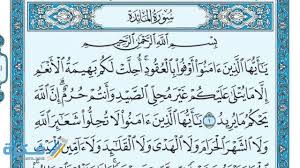 سُورَةُ المَائدَة
بِسْمِ اللَّهِ الرَّحْمَٰنِ الرَّحِيمِ
يَٰٓأَيُّهَا الَّذِينَ ءَامَنُوٓا أَوْفُوا بِالْعُقُودِ أُحِلَّتْ لَكُم بَهِيمَةُ الْأَنْعَٰمِ
إِلَّا مَا يُتْلَىٰ عَلَيْكُمْ غَيْرَ مُحِلِّي الصَّيْدِ وَأَنتُمْ حُرُمٌ إِنَّ اللَّهَ
يَحْكُمُ مَا يُرِيدُ ١ يَٰٓأَيُّهَا الَّذِينَ ءَامَنُوا لَا تُحِلُّوا شَعَٰٓئِرَ اللَّهِ
وَلَا الشَّهْرَ الْحَرَامَ وَلَا الْهَدْيَ وَلَا الْقَلَٰٓئِدَ وَلَآ ءَآمِّينَ الْبَيْتَ